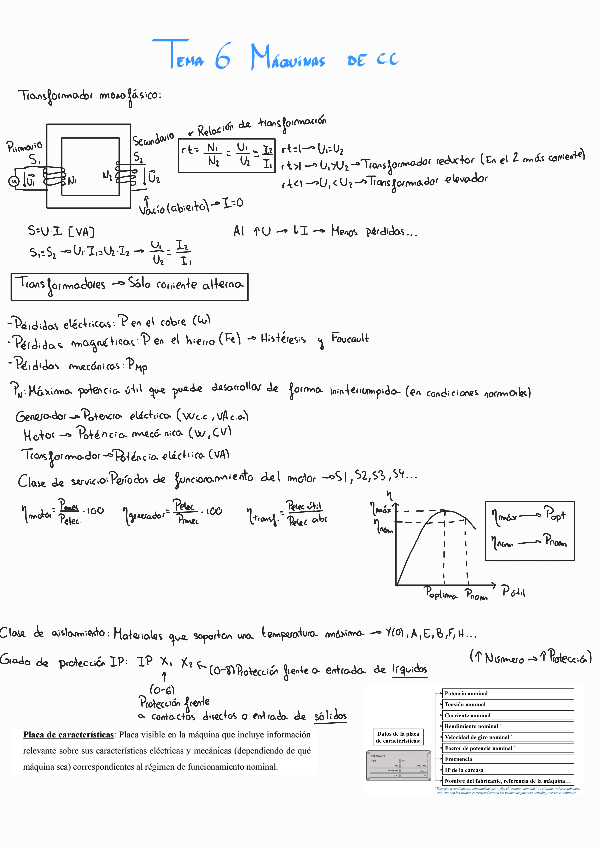 TEMA 6 MÁQUINAS DE CC
Transformador monofásico:
Primario
S₁
U₁
N₁
Secundario
S₂
N₂
U₂
Relación de transformación
rt = N₁/N₂ = U₁/U₂ = I₂/I₁
rt=1 → U₁=U₂
rt>1 → U₁>U₂ → Transformador reductor (En el 2 más corriente)
rt<1 → U₁<U₂ → Transformador elevador
Vacío (abierto) → I=0
S=U·I [VA]
Al ↑U → ↓I → Menos pérdidas...
S₁=S₂ → U₁·I₁=U₂·I₂ → U₁/U₂ = I₂/I₁
Transformadores → Sólo corriente alterna
- Pérdidas eléctricas: P en el cobre (Cu)
- Pérdidas magnéticas: P en el hierro (Fe) → Histéresis y Foucault
- Pérdidas mecánicas: PMp
PN: Máxima potencia útil que puede desarrollar de forma ininterrumpida (en condiciones normales)
Generador → Potencia eléctrica (Wc.c, VAc.a)
Motor → Poténcia mecánica (W, CV)
Transformador → Poténcia eléctrica (VA)
Clase de servicio: Períodos de funcionamiento del motor → S1, S2, S3, S4...
ηmotor = Pmec/Pelec · 100 ηgenerador = Pelec/Pmec · 100 ηtransf. = Pelec útil/Pelec abs
η
ηmáx
ηnom
Poptima Pnom Pútil
ηmáx → Popt
ηnom → Pnom
Clase de aislamiento: Materiales que soportan una temperatura máxima → Y(O), A, E, B, F, H...
Grado de protección IP: IP X₁ X₂ ← (0-8) Protección frente a entrada de líquidos (↑ Número → ↑ Protección)
(0-6)
Protección frente
a contactos directos o entrada de sólidos
Placa de características: Placa visible en la máquina que incluye información
relevante sobre sus características eléctricas y mecánicas (dependiendo de qué
máquina sea) correspondientes al régimen de funcionamiento nominal.
Datos de la placa
de características:
Potencia nominal
Tensión nominal
Corriente nominal
Rendimiento nominal
Velocidad de giro nominal
Factor de potencia nominal
Frecuencia
IP de la carcasa
Nombre del fabricante, referencia de la máquina...